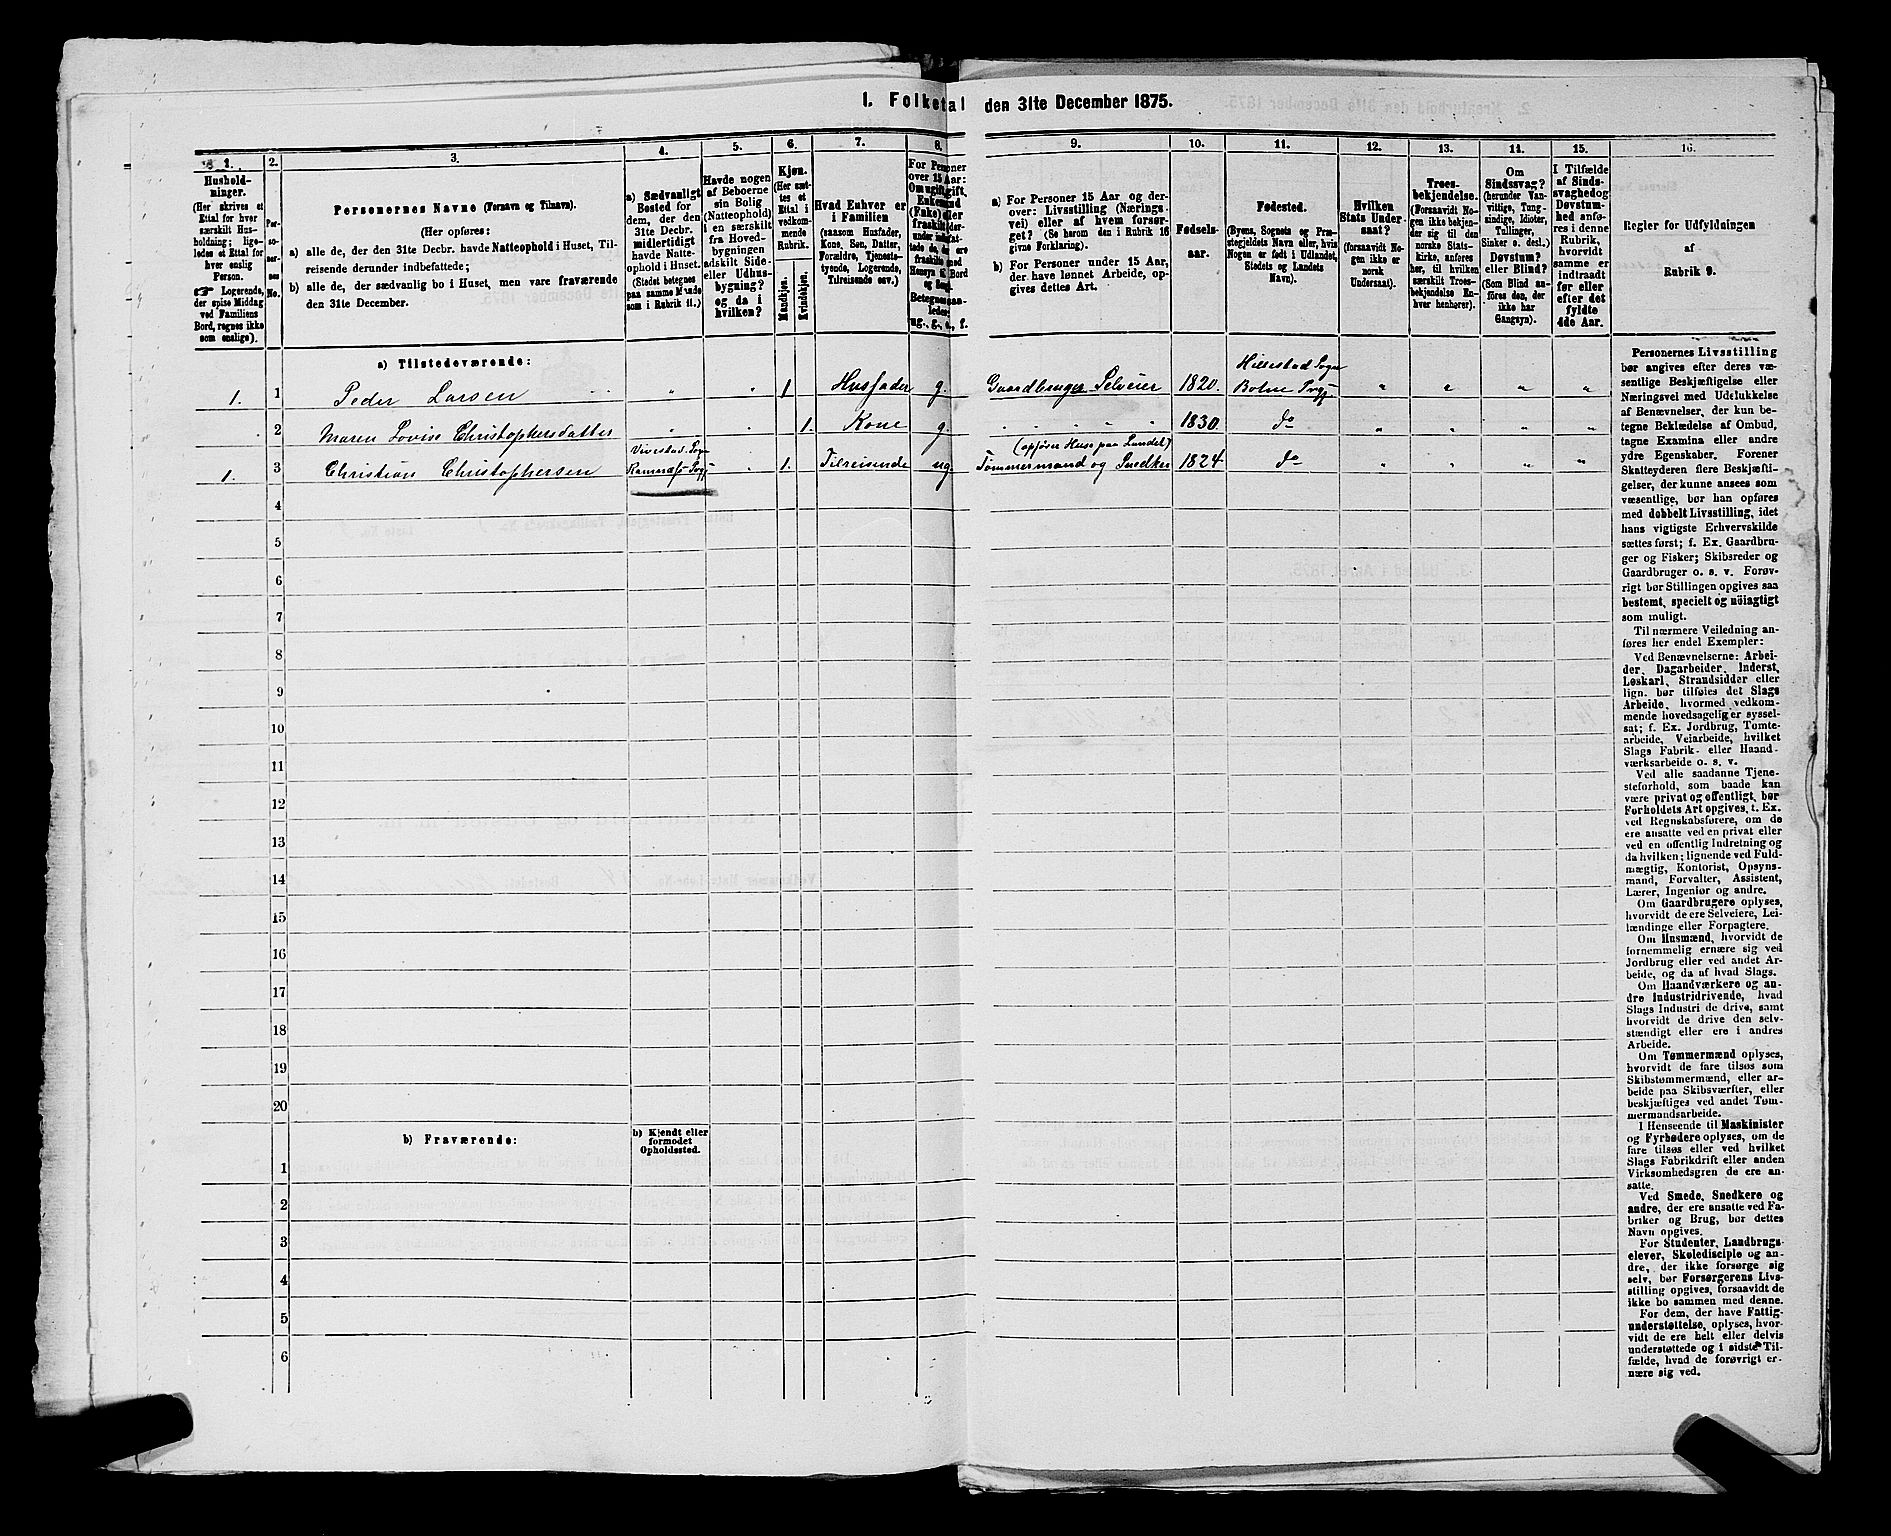 1. Folketal den 31te December 1875.
1.
Hushold-
ninger.
(Her skrives et
Ettal for hver
særskilt Hus-
holdning; lige-
ledes et Ettal for
hver enslig
Person.
☞ Logerende,
der spise Middag
ved Familiens
Bord, regnes ikke
som enslige).
2.
Per-
so-
ner-
nes
No.
3.
Personernes Navne (Fornavn og Tilnavn).
(Her opføres:
a) alle de, der den 31te Decbr. havde Natteophold i Huset, Til-
reisende derunder indbefattede;
b) alle de, der sædvanlig bo i Huset, men vare fraværende
den 31te December.
4.
a) Sædvanligt
Bosted for
dem, der den
31te Decbr.
midlertidigt
havde Natte-
ophold i Huset.
(Stedet betegnes
paa samme Maade
som i Rubrik 11.)
5.
Havde nogen
af Beboerne
sin Bolig
(Natteophold)
i en særskilt
fra Hoved-
bygningen
adskilt Side-
eller Udhus-
bygning?
og da i
hvilken?
6.
Kjøn.
(Her sæt-
tes et
Ettal i
vedkom-
mende
Rubrik.
Mandkjøn.
Kvindekjøn.
7.
Hvad Enhver er
i Familien
(saasom Husfader,
Kone, Søn, Datter,
Forældre, Tjeneste-
tyende, Logerende,
Tilreisende osv.)
8.
For Personer
over 15 Aar:
9.
a) For Personer 15 Aar og der-
over: Livsstilling (Nærings-
vei) eller af hvem forsør-
get? (Se herom den i Rubrik 16
givne Forklaring).
b) For Personer under 15 Aar,
der have lønnet Arbeide, op-
gives dettes Art.
10.
Fødsels-
aar.
11.
Fødested.
(Byens, Sognets og Præ-
stegjeldets Navn eller, hvis
Nogen er født i Udlandet,
Stedets og Landets
Navn).
12.
Hvilken
Stats Under-
saat?
(forsaavidt No-
gen ikke er
norsk
Undersaat).
13.
Troes-
bekjendelse.
(Forsaavidt No-
gen ikke bekjen-
der sig til den
norske Stats-
kirke, anføres
her, til hvilken
særskilt Troes-
bekjendelse En-
hver henhører).
14.
Om
Sindssvag?
(herunder Van-
vittige, Tung-
sindige, Idioter,
Tullinger,
Sinker o. desl.)
Døvstum?
eller Blind?
(Som Blind an-
føres den, der
ikke har
Gangsyn).
15.
I Tilfælde
af Sinds-
svaghed og
Døvstum-
hed anfø-
res i denne
Rubrik,
hvorvidt
samme er
indtraadt
før eller
efter det
fyldte
4de Aar.
16.
Regler for Udfyldningen
af
Rubrik 9.
a) Tilstedeværende:
Hillestad Sogn
1. 1 Peder Larsen " " 1 Husfader g. Gaardbruger Selveier 1820. Botne Prgj. " " " "
2 Maren Lovise Christophersdatter " " 1. Kone g. " 1830 do " " " "
Vivestad Sogn (opfører Huse paa Landet)
1. 3 Christian Christophersen Ramnæs Prgj " 1. Tilreisende ug. Tømmermand og Snedker 1824 do " " " "
4
5
6
7
8
9
10
11
12
13
14
15
16
17
18
19
20
b) Fraværende:
b) Kjendt eller
formodet
Opholdssted.
1
2
3
4
5
6
Personernes Livsstilling
bør angives efter deres væ-
sentlige Beskjæftigelse eller
Næringsvei med Udelukkelse
af Benævnelser, der kun be-
tegne Beklædelse af Ombud,
tagne Examina eller andre
ydre Egenskaber. Forener
Skatteyderen flere Beskjæfti-
gelser, der kunne ansees som
væsentlige, bør han opføres
med dobbelt Livsstilling, idet
hans vigtigste Erhvervskilde
sættes først; f. Ex. Gaardbru-
ger og Fisker; Skibsreder og
Gaardbruger o. s. v. Forøv-
rigt bør Stillingen opgives saa
bestemt, specielt og nöiagtigt
som muligt.
Til nærmere Veiledning an-
føres her endel Exempler:
Ved Benævnelserne: Arbei-
der, Dagarbeider, Inderst,
Løskarl, Strandsidder eller
lign. bør tilføies det Slags
Arbeide, hvormed vedkom-
mende hovedsagelig er syssel-
sat; f. Ex. Jordbrug, Tomte-
arbeide, Veiarbeide, hvilket
Slags Fabrik- eller Haand-
værksarbeide o. s. v.
Ved alle saadanne Tjene-
steforhold, som baade kan
være privat og offentligt, bør
Forholdets Art opgives, t. Ex.
ved Regnskabsførere, om de
ere ansatte ved en privat eller
ved en offentlig Indretning og
da hvilken; lignende ved Fuld-
mægtig, Kontorist, Opsyns-
mand, Forvalter, Assistent,
Lærer, Ingeniør og andre.
Om Gaardbrugere oplyses,
hvorvidt de ere Selveiere, Lei-
lændinge eller Forpagtere.
Om Husmænd, hvorvidt de
fornemmelig ernære sig ved
Jordbrug eller ved andet Ar-
beide, og da af hvad Slags.
Om Haandværkere og an-
dre Industridrivende, hvad
Slags Industri de drive, samt
hvorvidt de drive den selv-
stændigt eller ere i andres
Arbeide.
Om Tømmermænd oplyses,
hvorvidt de fare tilsøs som
Skibstømmermænd, eller ar-
beide paa Skibsværfter, eller
beskjæftiges ved andet Tøm-
mermandsarbeide.
I Henseende til Maskinister
og Fyrbødere oplyses, om de
fare tilsøs eller ved hvilket
Slags Fabrikdrift eller anden
Virksomhedsgren de ere an-
satte.
Ved Smede, Snedkere og
andre, der ere ansatte ved Fa-
briker og Brug, bør dettes
Navn opgives.
For Studenter, Landbrugs-
elever, Skoledisciple og an-
dre, der ikke forsørge sig
selv, bør Forsørgerens Livs-
stilling opgives, forsaavidt de
ikke bo sammen med denne.
For dem, der have Fattig-
understøttelse, oplyses, hvor-
vidt de ere helt eller delvis
understøttede og i sidste Til-
fælde, hvad de forøvrigt er-
nære sig ved.